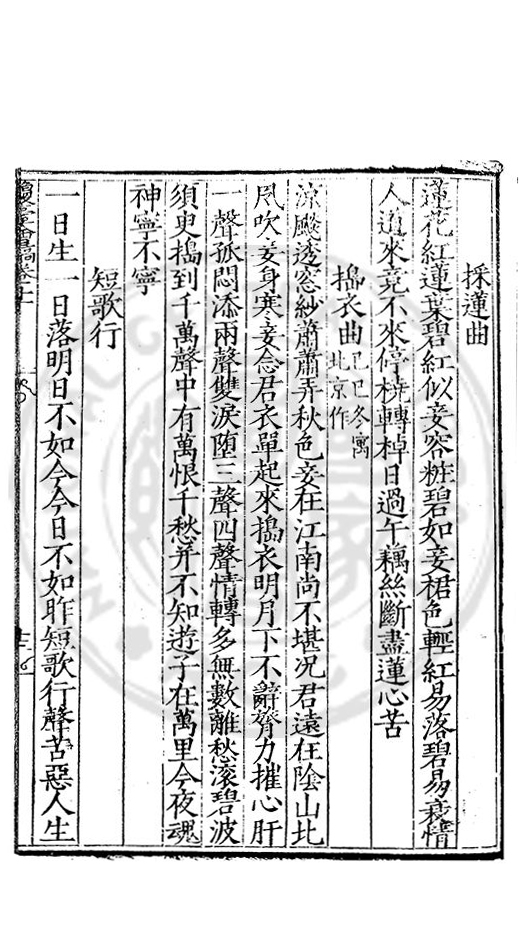 採蓮曲
蓮花紅蓮葉碧紅似妾容粧碧如妾裙色輕紅易落碧易衰情
人道來竟不來停橈轉棹日過午藕絲斷盡蓮心苦
搗衣曲己巳冬寓北京作
涼飈透窓紗蕭蕭弄秋色妾在江南尚不堪況君遠在陰山北
風吹妾身寒妾念君衣單起來搗衣明月下不辭膂力摧心肝
一聲孤悶添兩聲雙淚墮三聲四聲情轉多無數離愁滚碧波
須臾搗到千萬聲中有萬恨千愁并不知遊子在萬里今夜魂
神寧不寧
短歌行
一日生一日落明日不如今今日不如昨短歌行聲苦惡人生